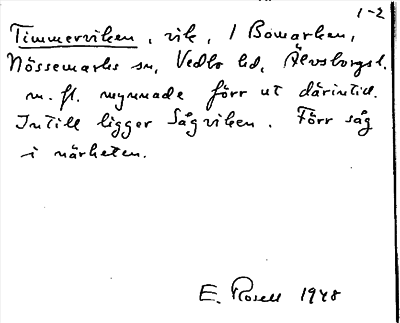 1-2
Timmerviken, vik, I Bomarken,
Nössemarks sn, Vedbo hd, Älvsborgs l.
m. fl. mynnade förr ut därintill.
Intill ligger Sågviken. Förr såg
i närheten.
E. Rosell 1948